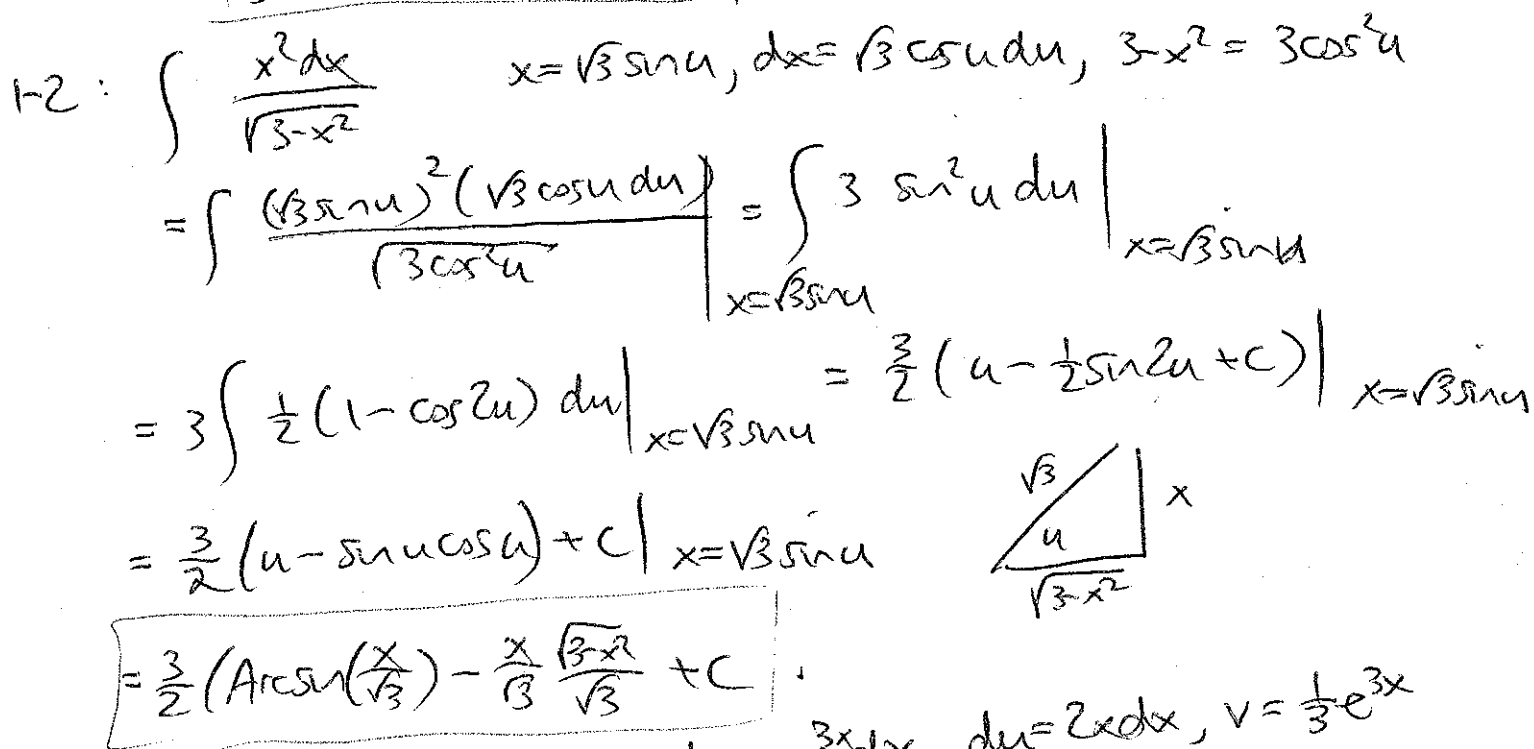 1-2: ∫ x²dx / √(3-x²)   x=√3 sin u, dx=√3 cos u du, 3-x² = 3cos²u
= ∫ (√3 sin u)² (√3 cos u du) / √(3cos²u) |x=√3 sin u = ∫ 3 sin²u du |x=√3 sin u
= 3∫ ½(1-cos2u) du |x=√3 sin u = 3/2 (u - ½ sin2u + C) | x=√3 sin u
= 3/2 (u - sin u cos u) + C | x=√3 sin u
√3
x
u
√(3-x²)
= 3/2 (Arcsin(x/√3) - x/√3 √(3-x²)/√3 + C .
du = 2xdx, v = ⅓e³ˣ